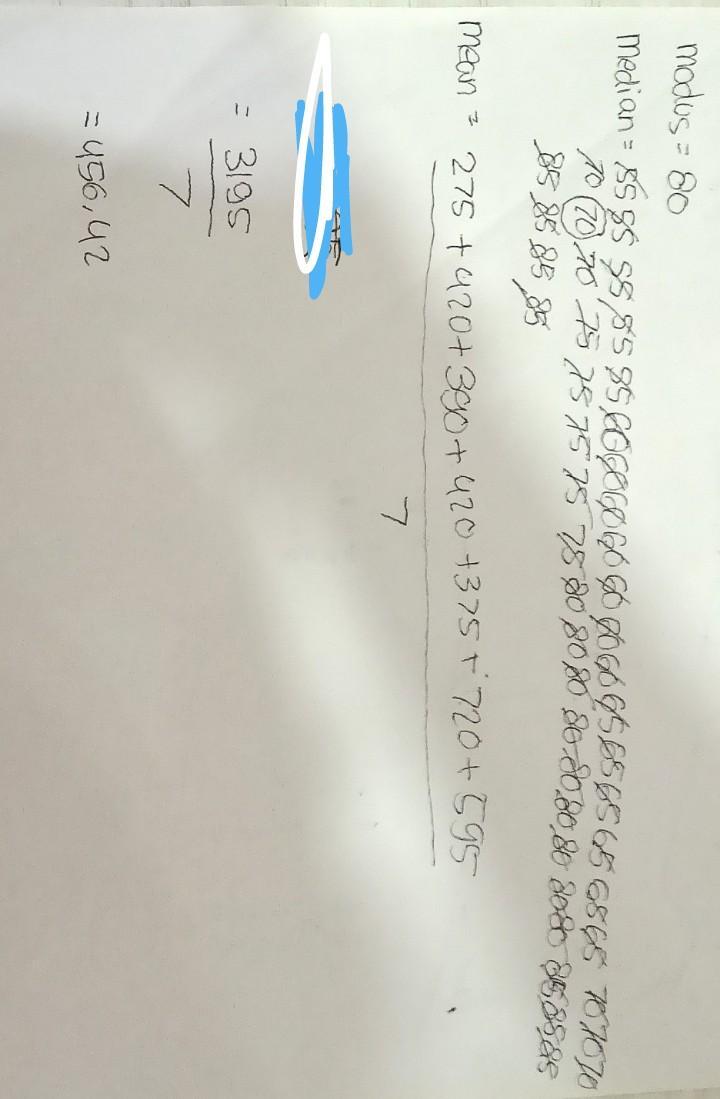 modus = 80
median = 55 55 55 55 55 60 60 60 60 60 60 60 65 65 65 65 65 65 70 70 70
70 70 70 75 75 75 75 75 80 80 80 80 80 80 80 80 80 85 85 85
85 85 85 85
mean = 275 + 420 + 390 + 420 + 375 + 720 + 595
7
= 3195
7
= 456,42